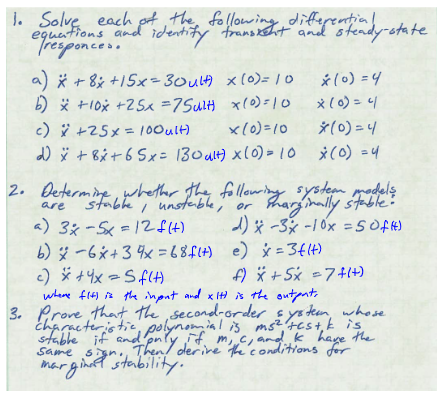 1. Solve each of the following differential
equations and identify transient and steady-state
responces.
a) ẍ + 8ẋ + 15x = 30u(t) x(0)= 10 ẋ(0) = 4
b) ẍ + 10ẋ + 25x = 75u(t) x(0)= 10 ẋ(0) = 4
c) ẍ + 25x = 100u(t) x(0)=10 ẋ(0) = 4
d) ẍ + 8ẋ + 65x = 130u(t) x(0) = 10 ẋ(0) = 4
2. Determine whether the following system models
are stable, unstable, or marginally stable:
a) 3ẋ - 5x = 12f(t) d) ẍ - 3ẋ - 10x = 50f(t)
b) ẍ - 6ẋ + 34x = 68f(t) e) ẋ = 3f(t)
c) ẍ + 4x = 5f(t) f) ẍ + 5ẋ = 7f(t)
where f(t) is the input and x(t) is the output.
3. Prove that the second-order system whose
characteristic polynomial is ms² + cs + k is
stable if and only if m, c, and k have the
same sign. Then derive the conditions for
marginal stability.